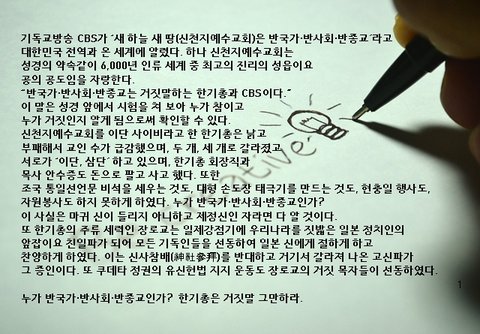 기독교방송 CBS가 ´새 하늘 새 땅(신천지예수교회)은 반국가·반사회·반종교´라고
대한민국 전역과 온 세계에 알렸다. 하나 신천지예수교회는
성경의 약속같이 6,000년 인류 세계 중 최고의 진리의 성읍이요
공의 공도임을 자랑한다.
"반국가·반사회·반종교는 거짓말하는 한기총과 CBS이다."
이 말은 성경 앞에서 시험을 쳐 보아 누가 참이고
누가 거짓인지 알게 됨으로써 확인할 수 있다.
신천지예수교회를 이단 사이비라고 한 한기총은 낡고
부패해서 교인 수가 급감했으며, 두 개, 세 개로 갈라졌고
서로가 ´이단, 삼단´ 하고 있으며, 한기총 회장직과
목사 안수증도 돈으로 팔고 사고 했다. 또한
조국 통일선언문 비석을 세우는 것도, 대형 손도장 태극기를 만드는 것도, 현충일 행사도,
자원봉사도 하지 못하게 하였다. 누가 반국가·반사회·반종교인가?
이 사실은 마귀 신이 들리지 아니하고 제정신인 자라면 다 알 것이다.
또 한기총의 주류 세력인 장로교는 일제강점기에 우리나라를 짓밟은 일본 정치인의
앞잡이요 친일파가 되어 모든 기독인들을 선동하여 일본 신에게 절하게 하고
찬양하게 하였다. 이는 신사참배(神社參拜)를 반대하고 거기서 갈라져 나온 고신파가
그 증인이다. 또 쿠데타 정권의 유신헌법 지지 운동도 장로교의 거짓 목자들이 선동하였다.
1
누가 반국가·반사회·반종교인가? 한기총은 거짓말 그만하라.